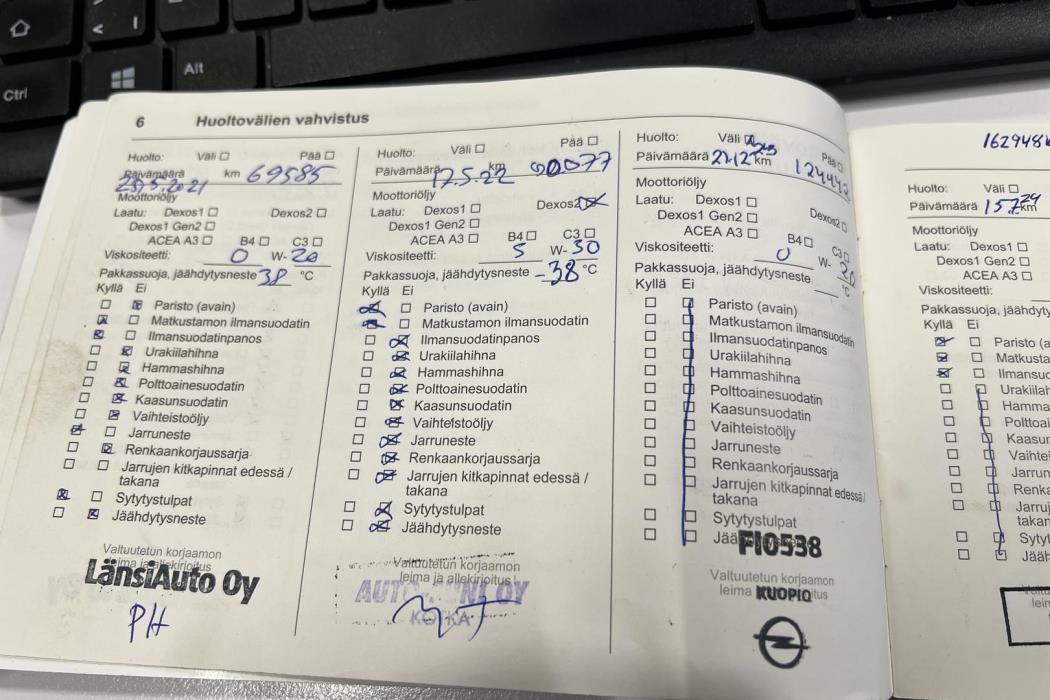 Ctrl
Alt
6 Huoltovälien vahvistus
Huolto: Väli ☐ Pää ☐
Päivämäärä km 69585
Moottoriöljy
Laatu: Dexos1 ☐ Dexos2 ☐
Dexos1 Gen2 ☐
ACEA A3 ☐ B4 ☐ C3 ☐
Viskositeetti: 0 W- 20
Pakkassuoja, jäähdytysneste 38 °C
Kyllä Ei
Paristo (avain)
Matkustamon ilmansuodatin
Ilmansuodatinpanos
Urakiilahihna
Hammashihna
Polttoainesuodatin
Kaasunsuodatin
Vaihteistoöljy
Jarruneste
Renkaankorjaussarja
Jarrujen kitkapinnat edessä /
takana
Sytytystulpat
Jäähdytysneste
Valtuutetun korjaamon
leima ja allekirjoitus
LänsiAuto Oy
PH
Huolto: Väli ☐ Pää ☐
Päivämäärä 17.5.22 km 90077
Moottoriöljy
Laatu: Dexos1 ☐ Dexos2 ☒
Dexos1 Gen2 ☐
ACEA A3 ☐ B4 ☐ C3 ☐
Viskositeetti: 5 W- 30
Pakkassuoja, jäähdytysneste -38 °C
Kyllä Ei
Paristo (avain)
Matkustamon ilmansuodatin
Ilmansuodatinpanos
Urakiilahihna
Hammashihna
Polttoainesuodatin
Kaasunsuodatin
Vaihteistoöljy
Jarruneste
Renkaankorjaussarja
Jarrujen kitkapinnat edessä /
takana
Sytytystulpat
Jäähdytysneste
Valtuutetun korjaamon
leima ja allekirjoitus
OY
KOTKA
Huolto: Väli Pää ☐
Päivämäärä 21.12 km 124442
Moottoriöljy
Laatu: Dexos1 ☐ Dexos2 ☐
Dexos1 Gen2 ☐
ACEA A3 ☐ B4 ☐ C3 ☐
Viskositeetti: 0 W- 30
Pakkassuoja, jäähdytysneste °C
Kyllä Ei
Paristo (avain)
Matkustamon ilmansuodatin
Ilmansuodatinpanos
Urakiilahihna
Hammashihna
Polttoainesuodatin
Kaasunsuodatin
Vaihteistoöljy
Jarruneste
Renkaankorjaussarja
Jarrujen kitkapinnat edessä /
takana
Sytytystulpat
FI0538
Valtuutetun korjaamon
leima KUOPIO
162948
Huolto: Väli ☐
Päivämäärä 15.7.24 km
Moottoriöljy
Laatu: Dexos1 ☐
Dexos1 Gen2 ☐
ACEA A3 ☐
Viskositeetti:
Pakkassuoja, jäähdyty
Kyllä Ei
Paristo (a
Matkusta
Ilmansuo
Urakiilah
Hamma
Polttoai
Kaasur
Vaihtei
Jarrun
Renka
Jarruj
takan
Sytyt
Jääh